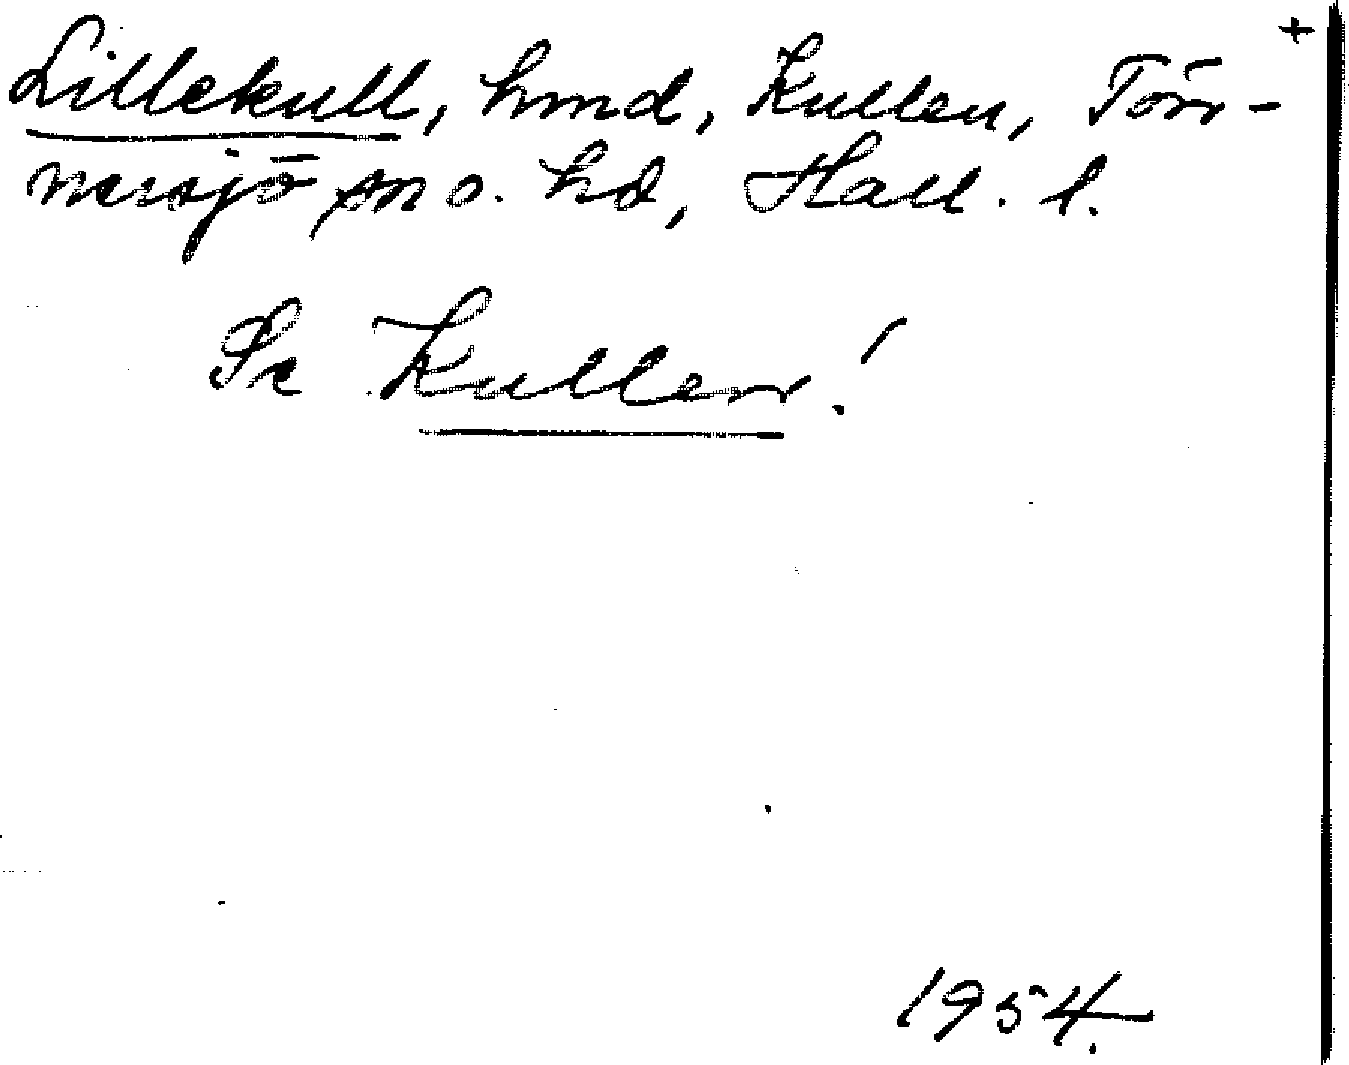 +
Lillekull, hmd, Kullen, Tönn-
nersjö sn o. hd, Hall. l.
Se Kullen!
1954.